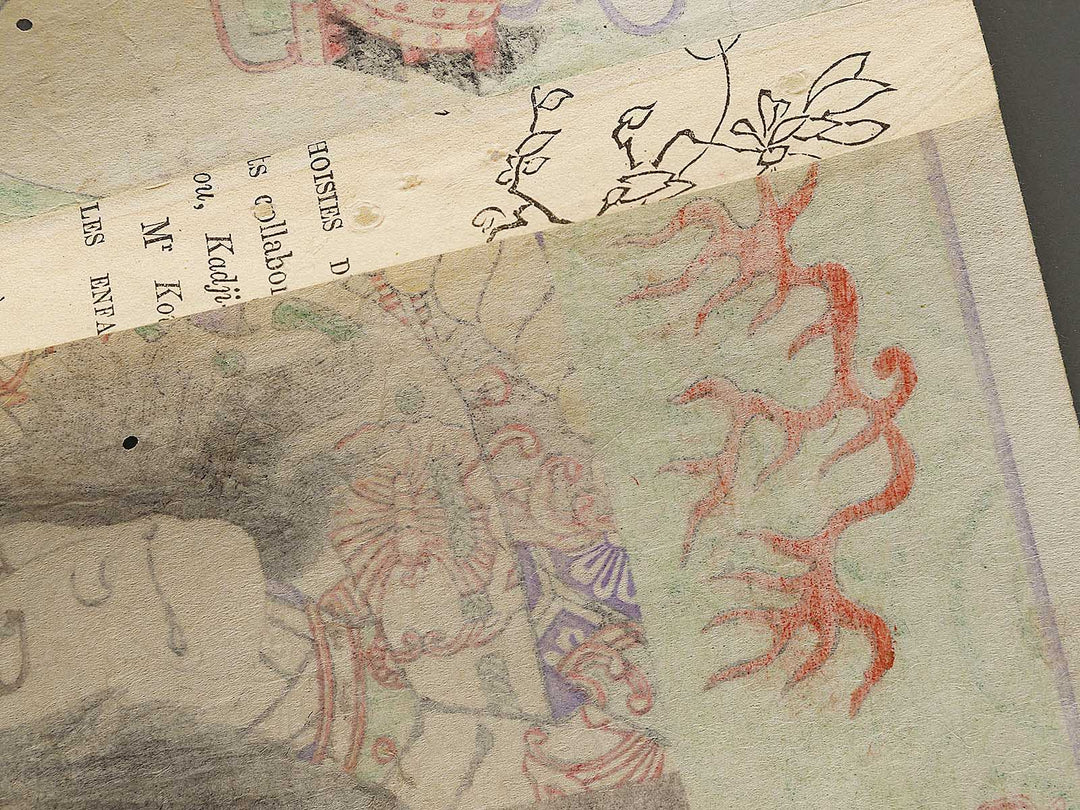 HOISIES D
ts collabo
ou, Kadji
Mʳ Ko
LES ENFA